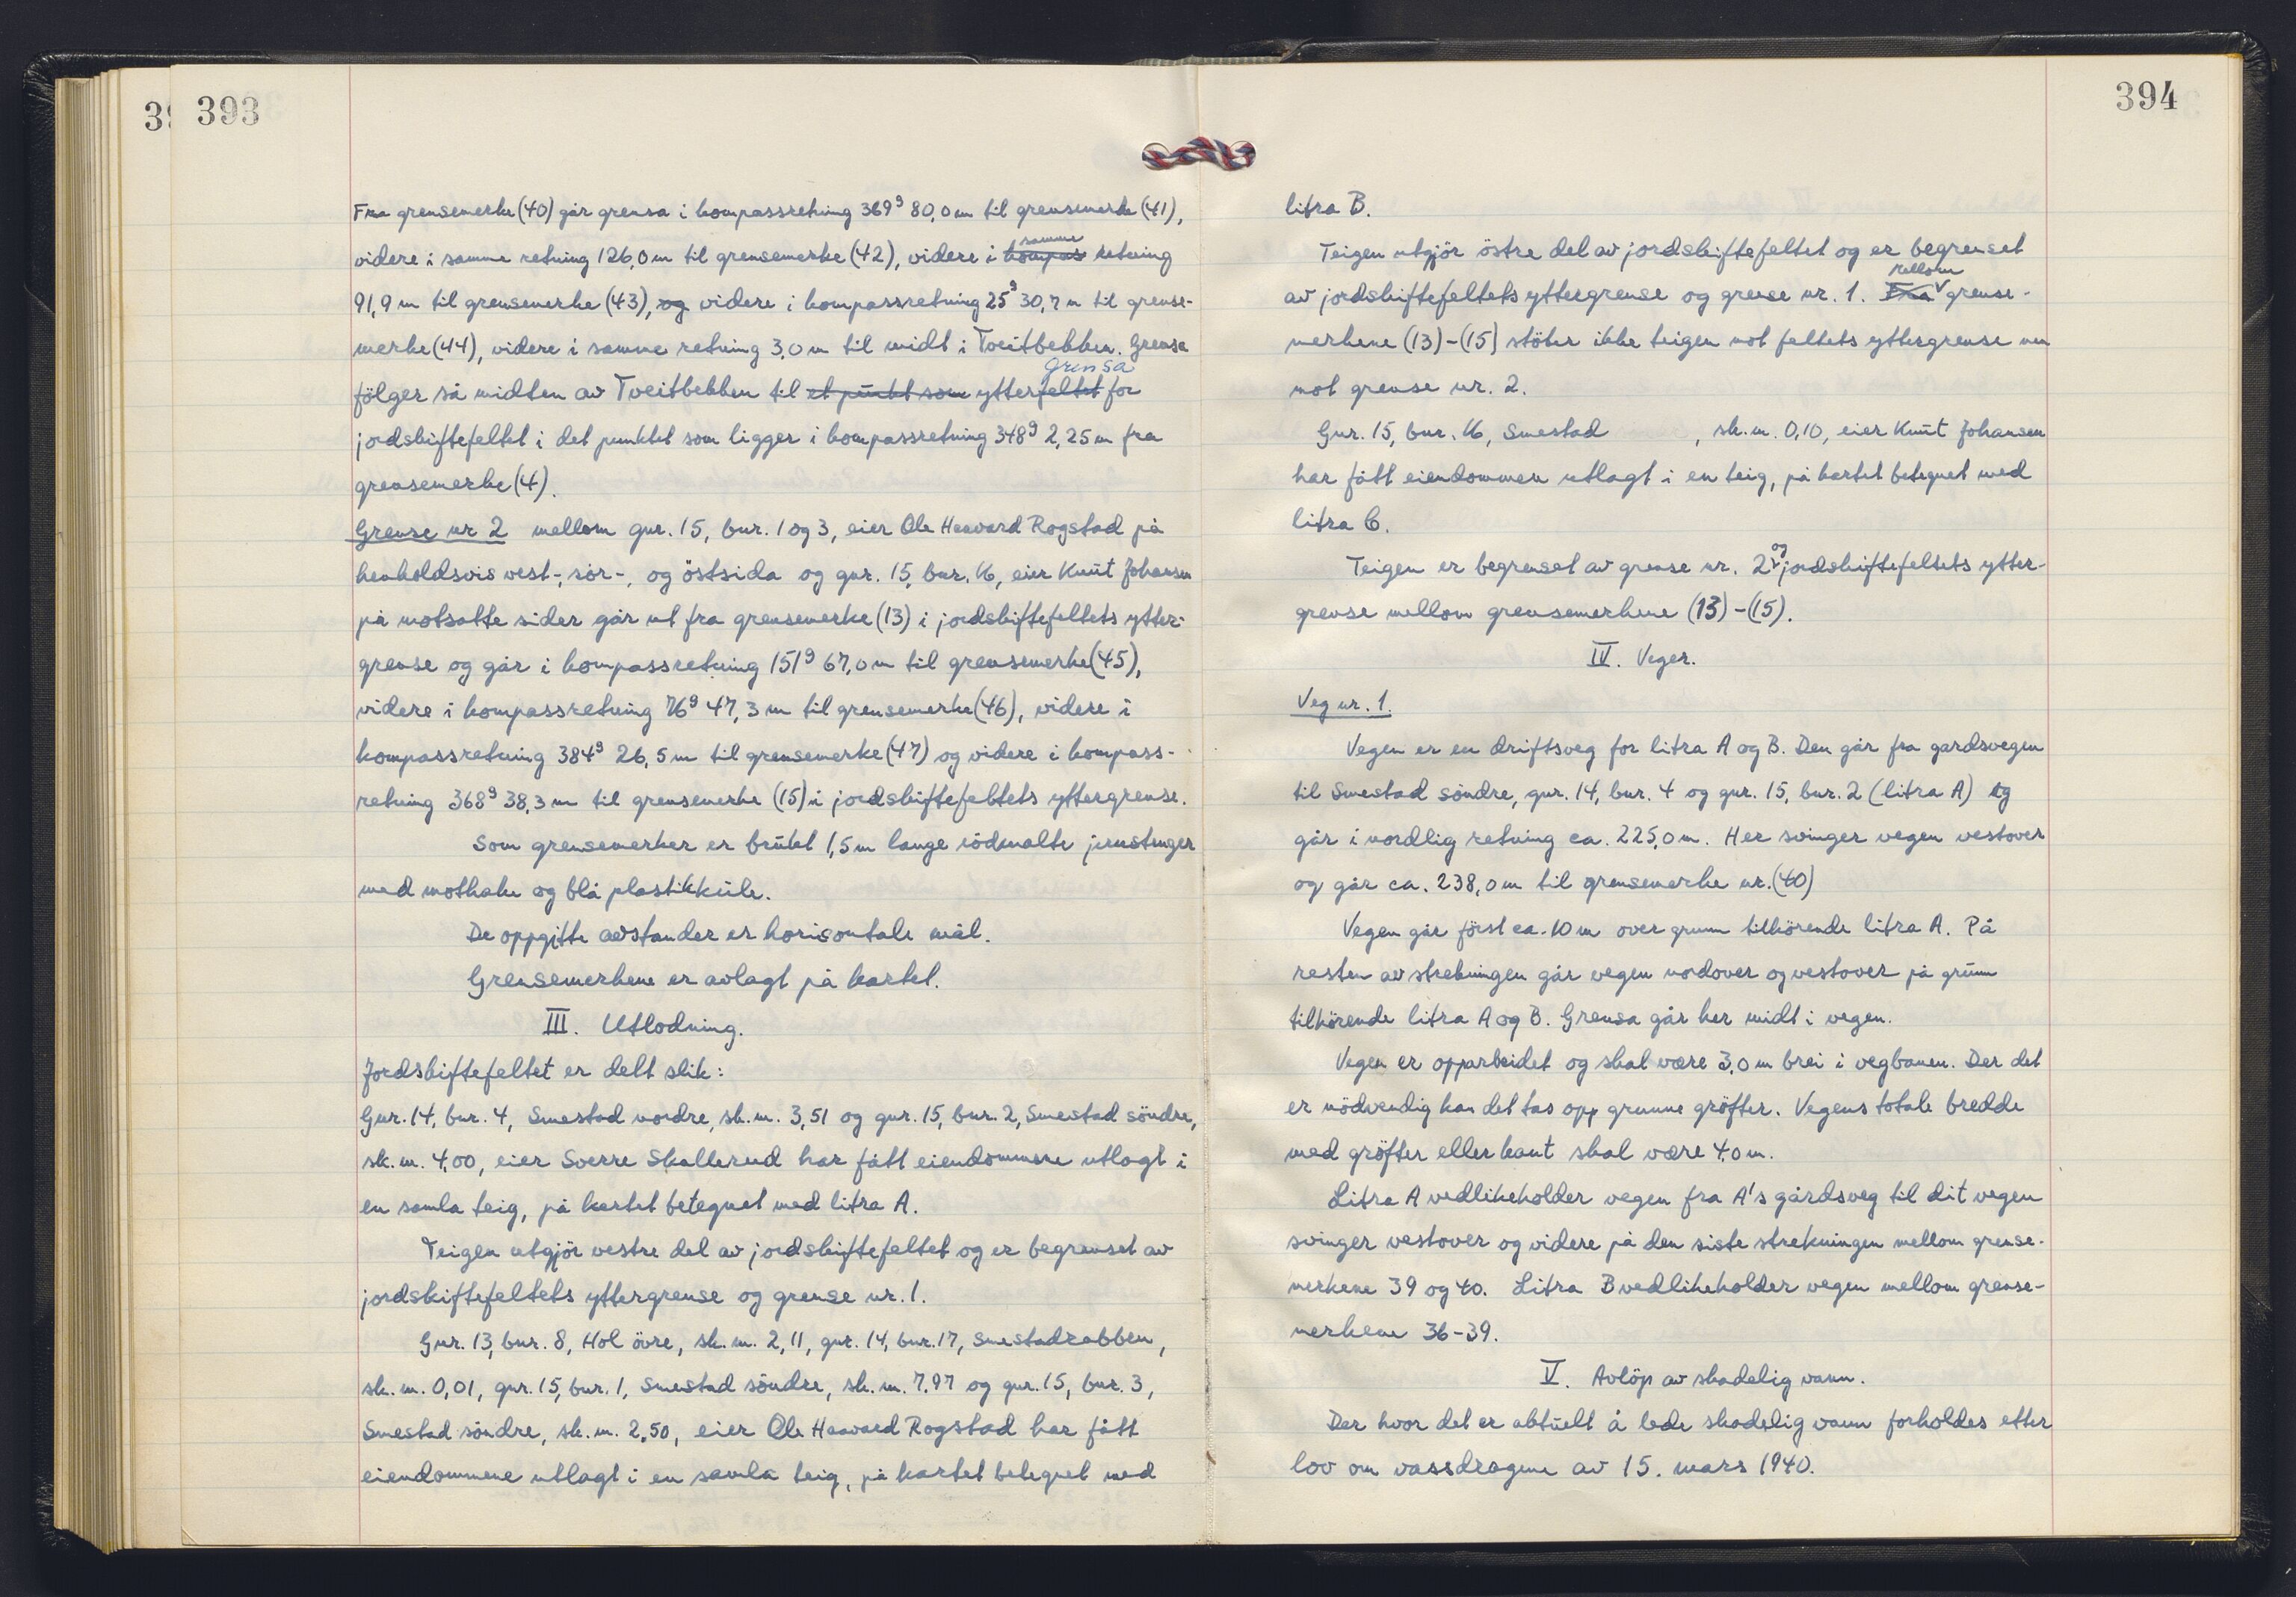 393
Fra grensemerke (40) går grensa i kompassretning 369g 80,0 m til grensemerke (41),
videre i samme retning 126,0 m til grensemerke (42), videre i kompas samme retning
91,9 m til grensemerke (43), og videre i kompassretning 25g 30,7 m til grense-
merke (44), videre i samme retning 3,0 m til midt i Tveitbekken. Grensa
fölger så midten av Tveitbekken til et punkt som ytterfeltet grensa for
jordskiftefeltet i det punktet som ligger i kompassretning 348g 2,25 m fra
grensemerke (4).
Grense nr 2 mellom gnr. 15, bnr. 1 og 3, eier Ole Haavard Rogstad på
henholdsvis vest-, sör-, og östsida og gnr. 15, bnr. 16, eier Knut Johansen
på motsatte sider går ut fra grensemerke (13) i jordskiftefeltets ytter-
grense og går i kompassretning 151g 67,0 m til grensemerke (45),
videre i kompassretning 76g 47,3 m til grensemerke (46), videre i
kompassretning 384g 26,5 m til grensemerke (47) og videre i kompass-
retning 368g 38,3 m til grensemerke (15) i jordskiftefeltets yttergrense.
Som grensemerker er brukt 1,5 m lange rödmalte jernstenger
med mothake og blå plastikkule.
De oppgitte avstander er horisontale mål.
Grensemerkene er avlagt på kartet.
III. Utlodning.
Jordskiftefeltet er delt slik:
Gnr. 14, bnr. 4, Smestad nordre, sk.m. 3,51 og gnr. 15, bnr. 2, Smestad söndre,
sk.m. 4,00, eier Sverre Skallerud har fått eiendommene utlagt i
en samla teig, på kartet betegnet med litra A.
Teigen utgjör vestre del av jordskiftefeltet og er begrenset av
jordskiftefeltets yttergrense og grense nr. 1.
Gnr. 13, bnr. 8, Hol övre, sk.m. 2,11, gnr. 14, bnr. 17, Smestadrabben,
sk.m. 0,01, gnr. 15, bnr. 1, Smestad söndre, sk.m. 7,97 og gnr. 15, bnr. 3,
Smestad söndre, sk.m. 2,50, eier Ole Haavard Rogstad har fått
eiendommene utlagt i en samla teig, på kartet betegnet med
394
litra B.
Teigen utgjör östre del av jordskiftefeltet og er begrenset
av jordskiftefeltets yttergrense og grense nr. 1. Fra Mellom grense-
merkene (13)-(15) stöter ikke teigen mot feltets yttergrense men
mot grense nr. 2.
Gnr. 15, bnr. 16, Smestad , sk.m. 0,10, eier Knut Johansen
har fått eiendommen utlagt i en teig, på kartet betegnet med
litra C.
Teigen er begrenset av grense nr. 2 og jordskiftefeltets ytter-
grense mellom grensemerkene (13)-(15).
IV. Veger.
Veg nr. 1.
Vegen er en driftsveg for litra A og B. Den går fra gardsvegen
til Smestad söndre, gnr. 14, bnr. 4 og gnr. 15, bnr. 2 (litra A) og
går i nordlig retning ca. 225,0 m. Her svinger vegen vestover
og går ca. 238,0 m til grensemerke nr. (40)
Vegen går först ca. 10 m over grunn tilhörende litra A. På
resten av strekningen går vegen nordover og vestover på grunn
tilhörende litra A og B. Grensa går her midt i vegen.
Vegen er opparbeidet og skal være 3,0 m brei i vegbanen. Der det
er nödvendig kan det tas opp grunne gröfter. Vegens totale bredde
med gröfter eller kant skal være 4,0 m.
Litra A vedlikeholder vegen fra A's gårdsveg til dit vegen
svinger vestover og videre på den siste strekningen mellom grense-
merkene 39 og 40. Litra B vedlikeholder vegen mellom grense-
merkene 36-39.
V. Avlöp av skadelig vann.
Der hvor det er aktuelt å lede skadelig vann forholdes etter
lov om vassdragene av 15. mars 1940.